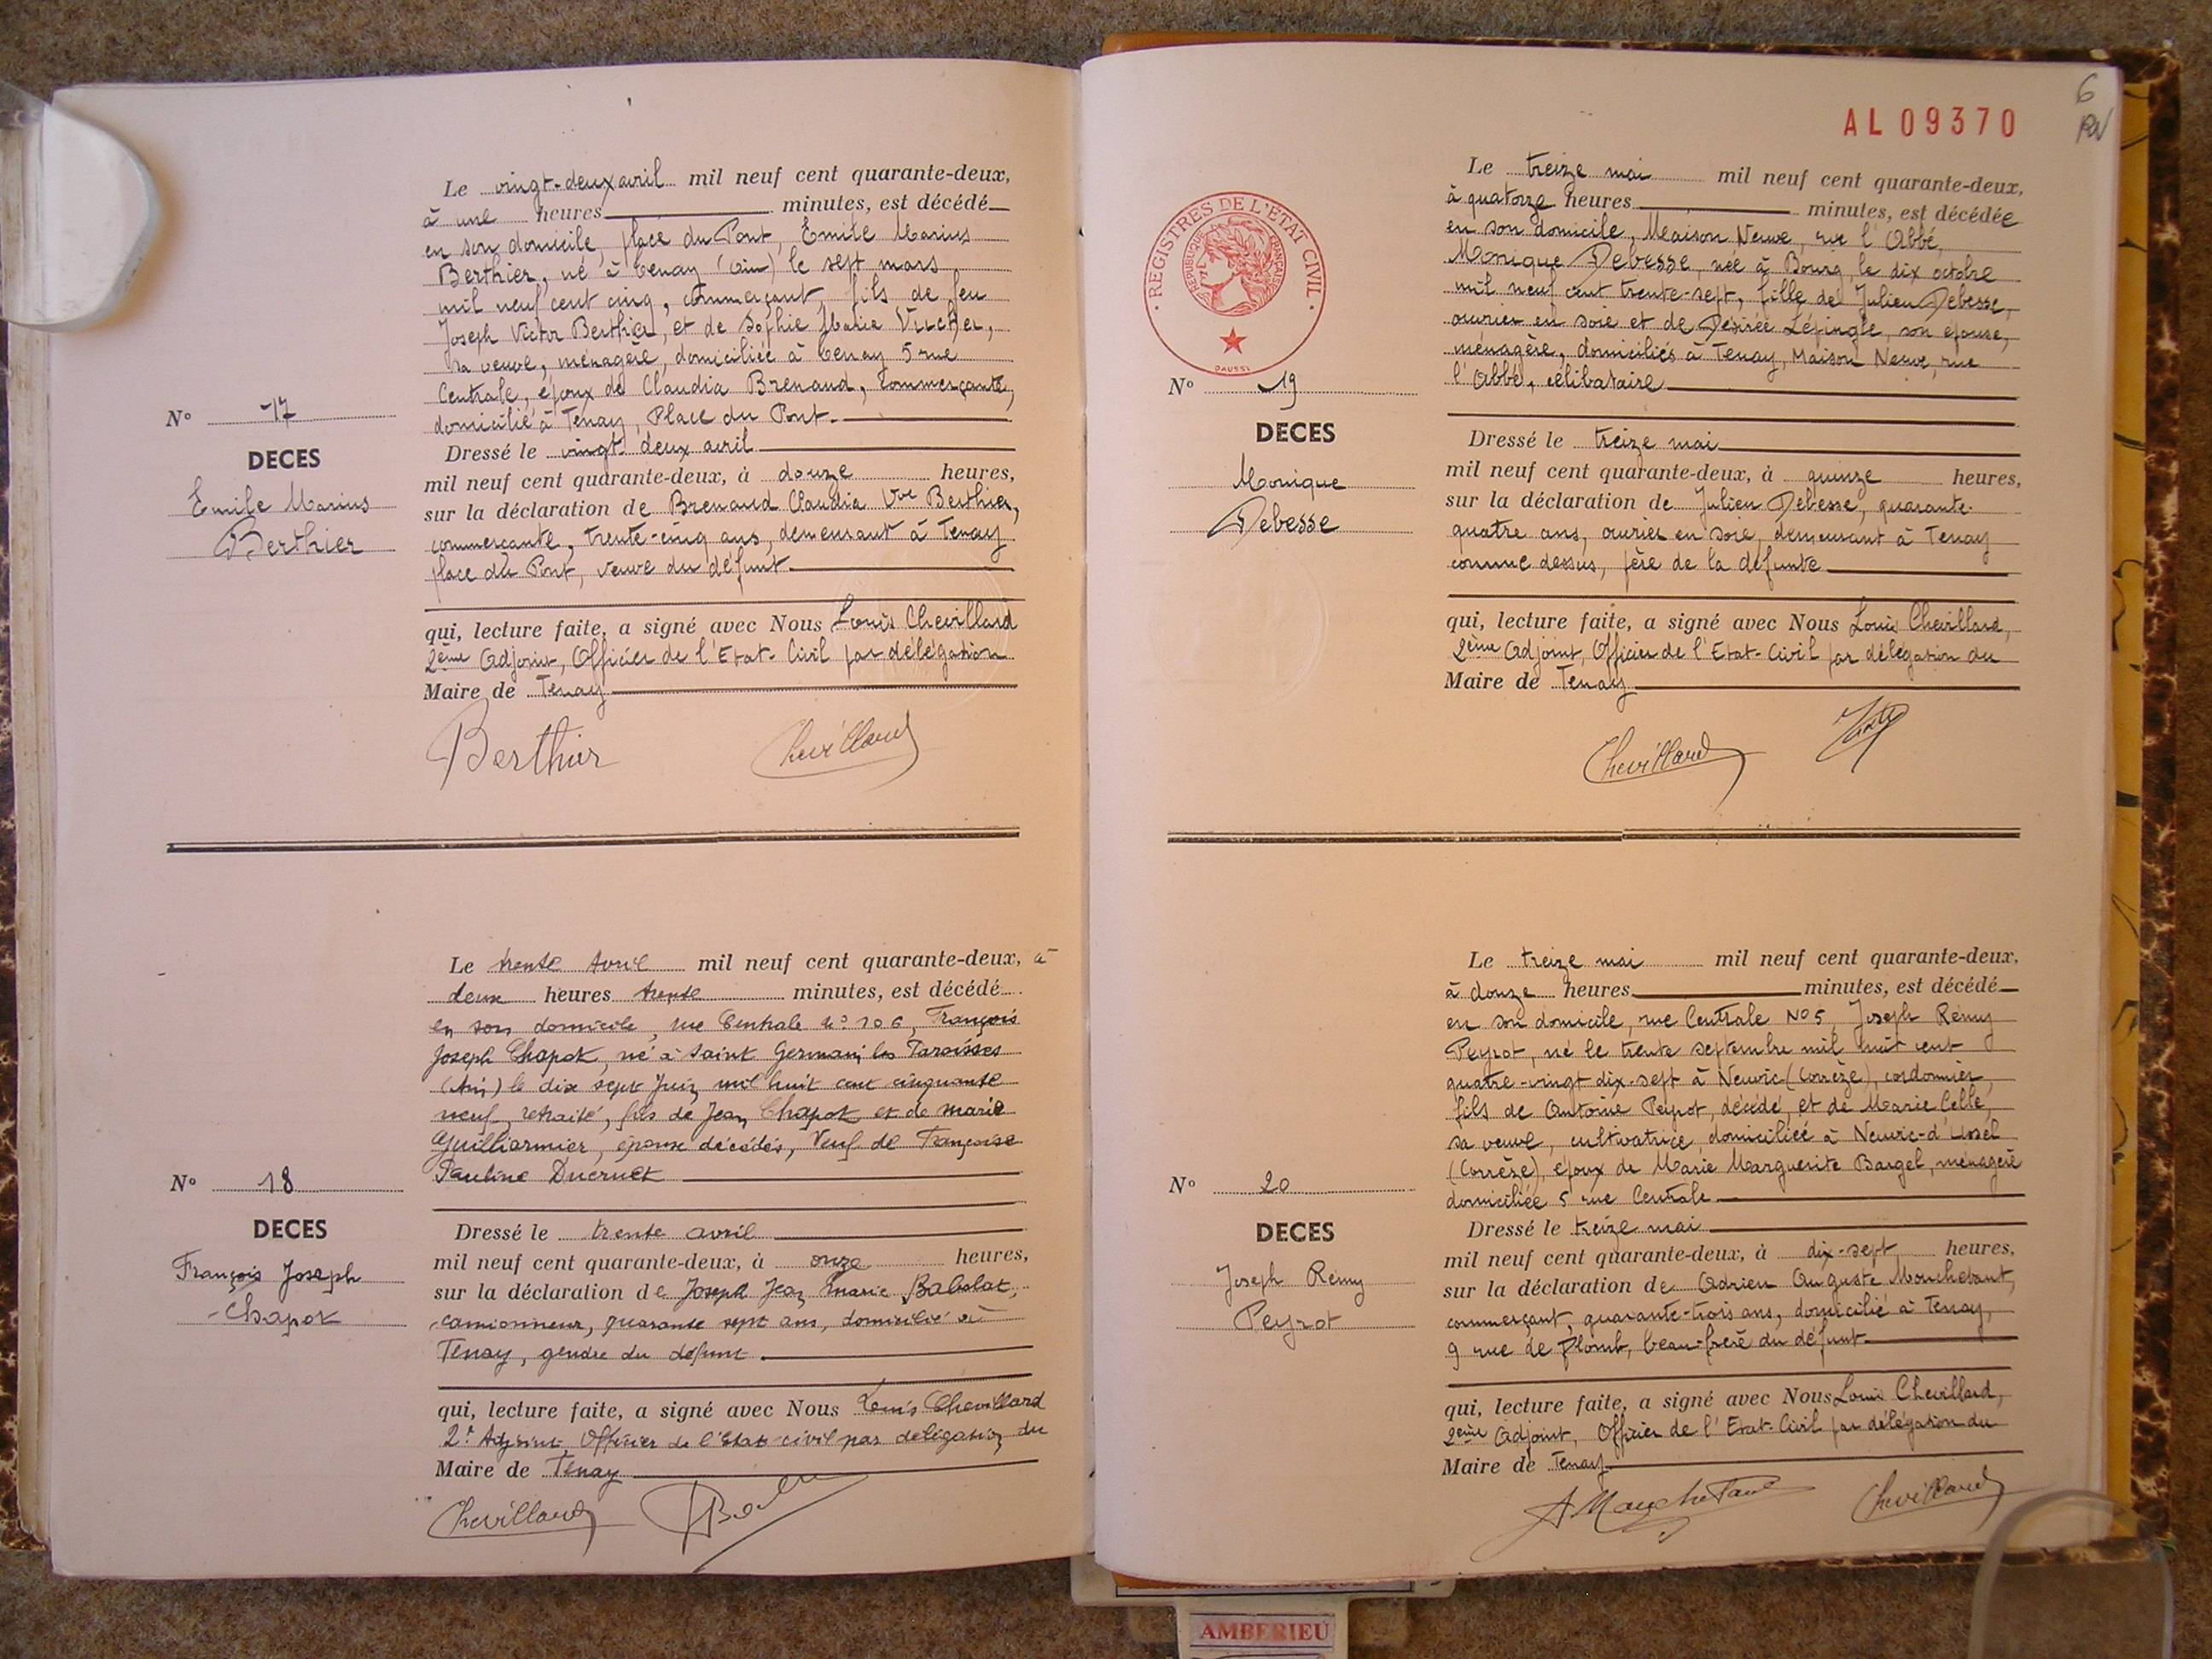 Le vingt-deux avril mil neuf cent quarante-deux,
à une heures minutes, est décédé
en son domicile, place du Pont, Emile Marius
Berthier, né à Tenay (Ain) le sept mars
mil neuf cent cinq, commerçant, fils de feu
Joseph Victor Berthier, et de Sophie Marie
sa veuve, ménagère, domiciliée à Tenay 5 rue
Centrale, époux de Claudia Brenaud, commerçante,
domicilié à Tenay, Place du Pont.
Nº 17
DECES
Emile Marius
Berthier
Dressé le vingt deux avril
mil neuf cent quarante-deux, à douze heures,
sur la déclaration de Brenaud Claudia Vve Berthier,
commerçante, trente-cinq ans, demeurant à Tenay
place du Pont, veuve du défunt.
qui, lecture faite, a signé avec Nous Louis Chevillard
2ème Adjoint, Officier de l'Etat-Civil par délégation
Maire de Tenay
Berthier Chevillard
Le trente Avril mil neuf cent quarante-deux, à
deux heures trente minutes, est décédé
en son domicile, rue Centrale nº 106, François
Joseph Chapot, né à Saint Germain les Paroisses
(Ain) le dix sept Juin mil huit cent cinquante
neuf, retraité, fils de Jean Chapot et de marie
Guilliermier, époux décédés, Veuf de Françoise
Pauline Ducruet
Nº 18
DECES
François Joseph
Chapot
Dressé le trente avril
mil neuf cent quarante-deux, à onze heures,
sur la déclaration de Joseph Jean Marie Babolat,
camionneur, quarante sept ans, domicilié à
Tenay, gendre du défunt.
qui, lecture faite, a signé avec Nous Louis Chevillard
2e Adjoint, Officier de l'Etat civil par délégation du
Maire de Tenay
Chevillard
6
AL 09370
REGISTRES DE L'ÉTAT CIVIL
REPUBLIQUE FRANÇAISE
DAUSSY
Le treize mai mil neuf cent quarante-deux,
à quatorze heures minutes, est décédée
en son domicile, Maison Neuve, rue l'Abbé,
Monique Debesse, née à Bourg, le dix octobre
mil neuf cent trente-sept, fille de Julien Debesse,
ouvrier en soie et de Désirée Lépingle, son épouse,
ménagère, domiciliés à Tenay, Maison Neuve, rue
l'Abbé, célibataire
Nº 19
DECES
Monique
Debesse
Dressé le treize mai
mil neuf cent quarante-deux, à quinze heures,
sur la déclaration de Julien Debesse, quarante-
quatre ans, ouvrier en soie, demeurant à Tenay
comme dessus, père de la défunte
qui, lecture faite, a signé avec Nous Louis Chevillard,
2ème Adjoint, Officier de l'Etat-Civil par délégation du
Maire de Tenay
Chevillard
Le treize mai mil neuf cent quarante-deux,
à douze heures minutes, est décédé
en son domicile, rue Centrale Nº 5, Joseph Rémy
Peyrot, né le trente septembre mil huit cent
quatre-vingt dix-sept à Neuvic (Corrèze), cordonnier,
fils de Antoine Peyrot, décédé, et de Marie Celle,
sa veuve, cultivatrice, domiciliée à Neuvic-d'Ussel
(Corrèze), époux de Marie Marguerite Bargel, ménagère
domiciliée 5 rue Centrale
Nº 20
DECES
Joseph Rémy
Peyrot
Dressé le treize mai
mil neuf cent quarante-deux, à dix-sept heures,
sur la déclaration de Adrien Auguste Mouchetant,
commerçant, quarante-trois ans, domicilié à Tenay,
9 rue de Plomb, beau-frère du défunt.
qui, lecture faite, a signé avec Nous Louis Chevillard,
2ème Adjoint, Officier de l'Etat-Civil par délégation du
Maire de Tenay
Chevillard
AMBERIEU